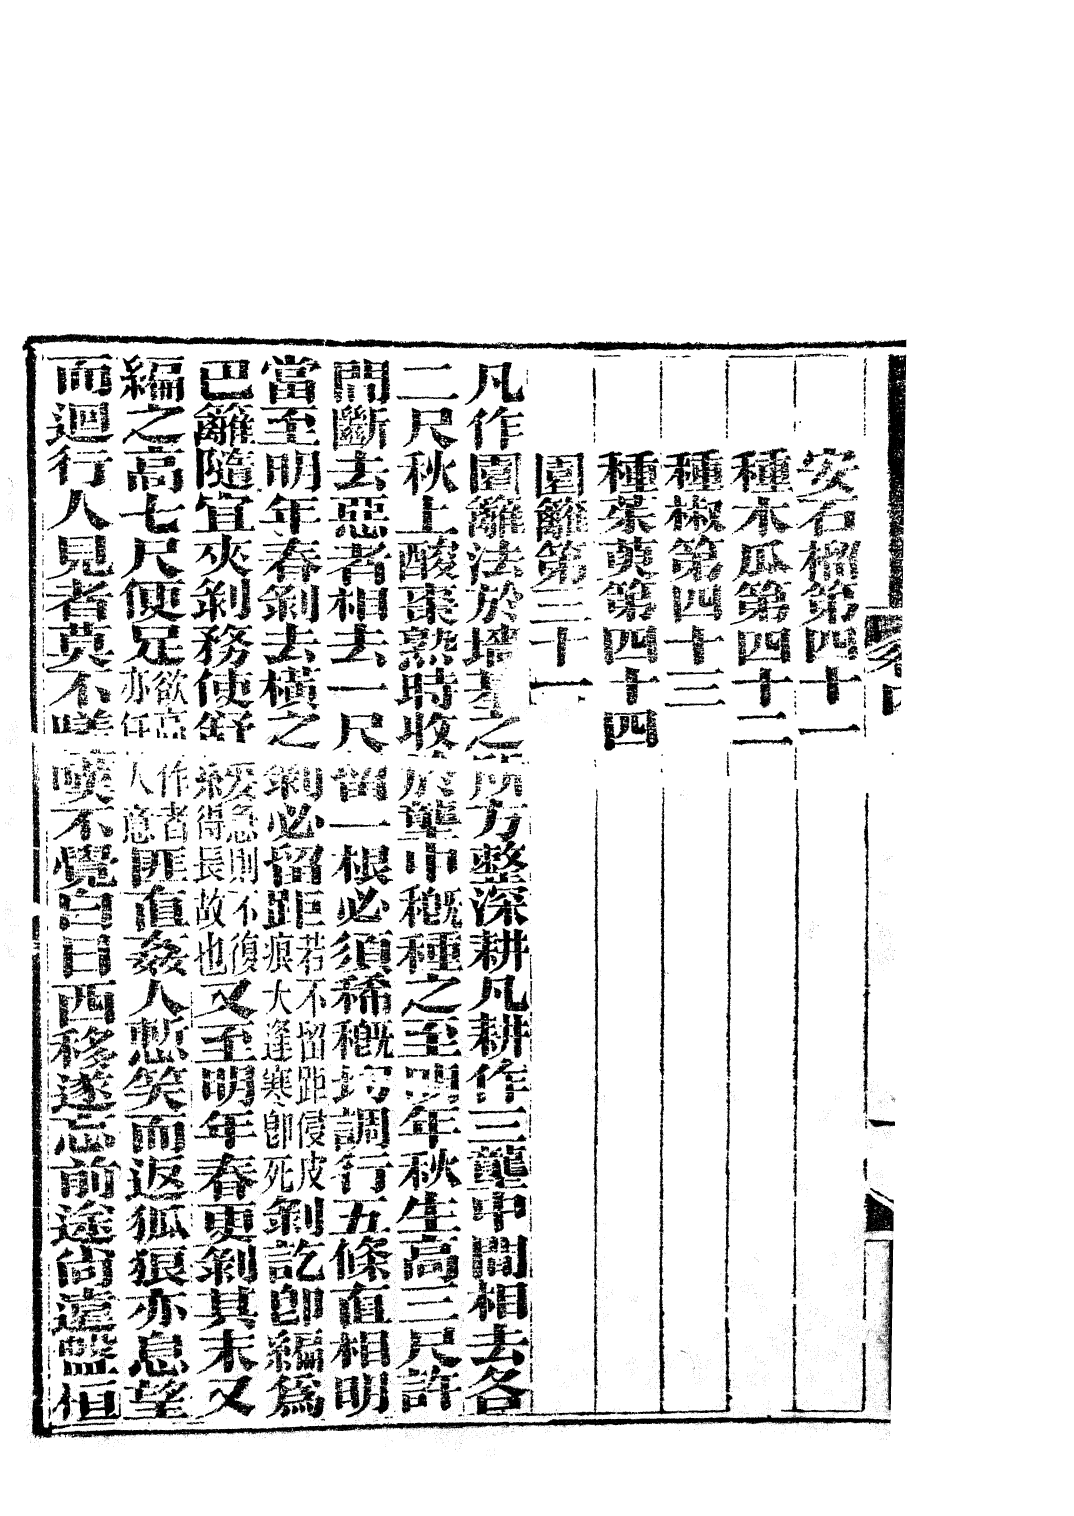 安石榴第四十一
種木瓜第四十二
種椒第四十三
種茱萸第四十四
園籬第三十一
凡作園籬法於墻基之所方整深耕凡耕作三壟中間相去各
二尺秋上酸棗熟時收於壟中穊種之至明年秋生高三尺許
間斷去惡者相去一尺留一根必須稀穊均調行五條直相明
當至明年春剝去橫之剝必留距若不留距侵皮痕大逢寒卽死剝訖卽編爲
巴籬隨宜夾剝務使舒緩急則不復糸得長故也又至明年春更剝其末又
編之高七尺便足欲高作者亦任人意匪直姦人慙笑而返狐狼亦息望
而迴行人見者莫不嗟嘆不覺白日西移遂忘前途尚遠盤佪